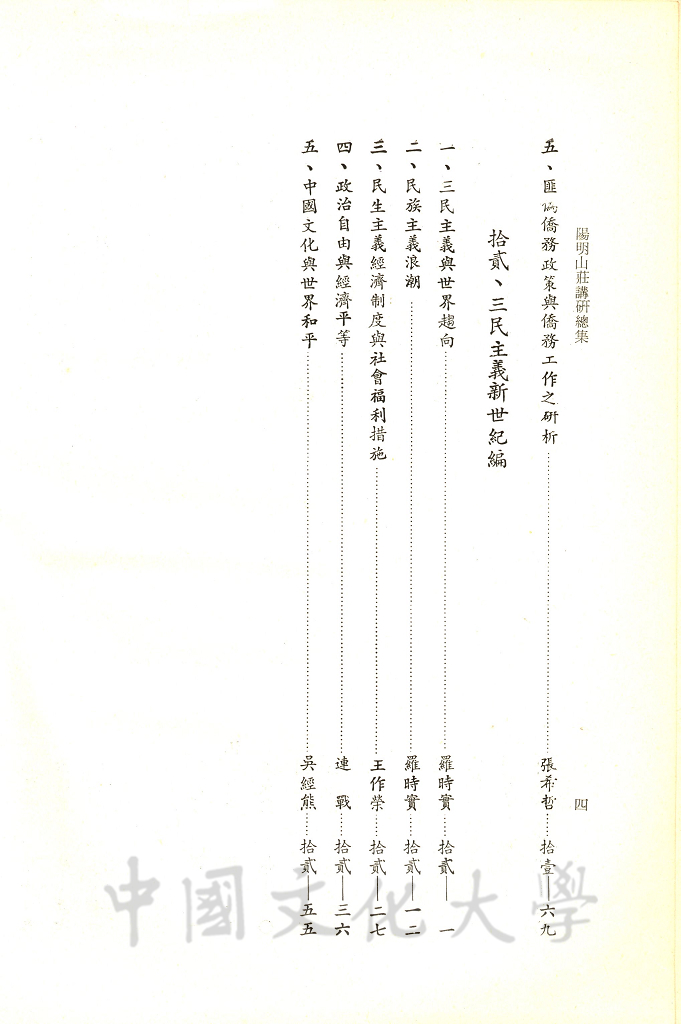 陽明山莊講硏總集
四
五、匪偽僑務政策與僑務工作之硏析……張希哲……拾壹——六九
拾貳、三民主義新世紀編
一、三民主義與世界趨向……羅時實……拾貳——一
二、民族主義浪潮……羅時實……拾貳——一二
三、民生主義經濟制度與社會福利措施……王作榮……拾貳——二七
四、政治自由與經濟平等……連 戰……拾貳——三六
五、中國文化與世界和平……吳經熊……拾貳——五五
中國文化大學